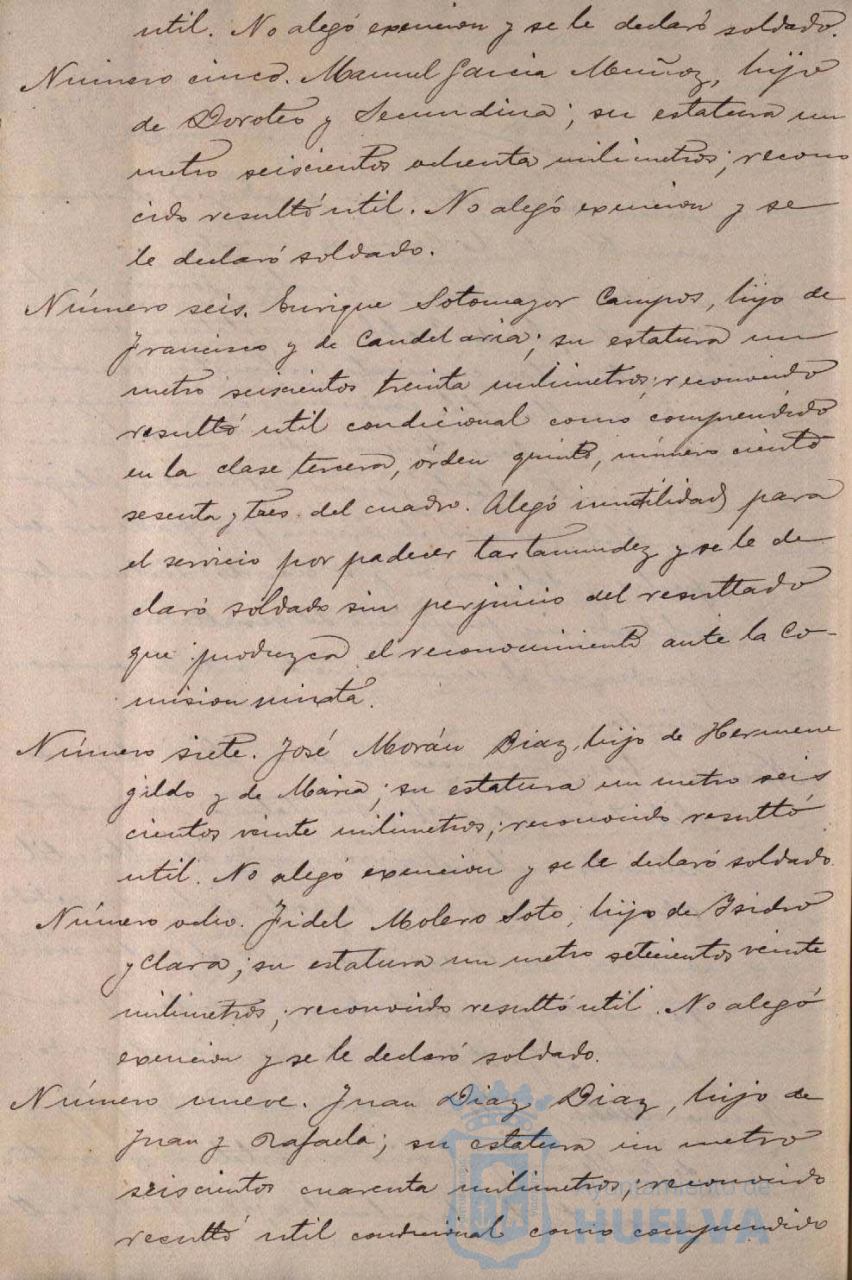 util. No alegó exencion y se le declaró soldado.
Número cinco. Manuel Garcia Muñoz, hijo
de Doroteo y Secundina; su estatura un
metro seiscientos ochenta milimetros; recono
cido resultó util. No alegó exencion y se
le declaró soldado.
Número seis. Enrique Sotomayor Campos, hijo de
Francisco y de Candelaria; su estatura un
metro seiscientos treinta milimetros; reconocido
resultó util condicional como comprendido
en la clase tercera, órden quinto, número ciento
sesenta y tres del cuadro. Alegó inutilidad para
el servicio por padecer tartamudez y se le de
claró soldado sin perjuicio del resultado
que produzca el reconocimiento ante la Co-
mision mixta.
Número siete. José Morán Diaz, hijo de Hermene
gildo y de Maria; su estatura un metro seis
cientos veinte milimetros; reconocido resultó
util. No alegó exencion y se le declaró soldado
Número ocho. Fidel Molero Soto, hijo de Isidro
y Clara; su estatura un metro setecientos veinte
milimetros; reconocido resultó util. No alegó
exencion y se le declaró soldado.
Número nueve. Juan Diaz Diaz, hijo de
Juan y Rafaela; su estatura un metro
seiscientos cuarenta milimetros; reconocido
resultó util condicional como comprendido
Ayuntamiento de
HUELVA